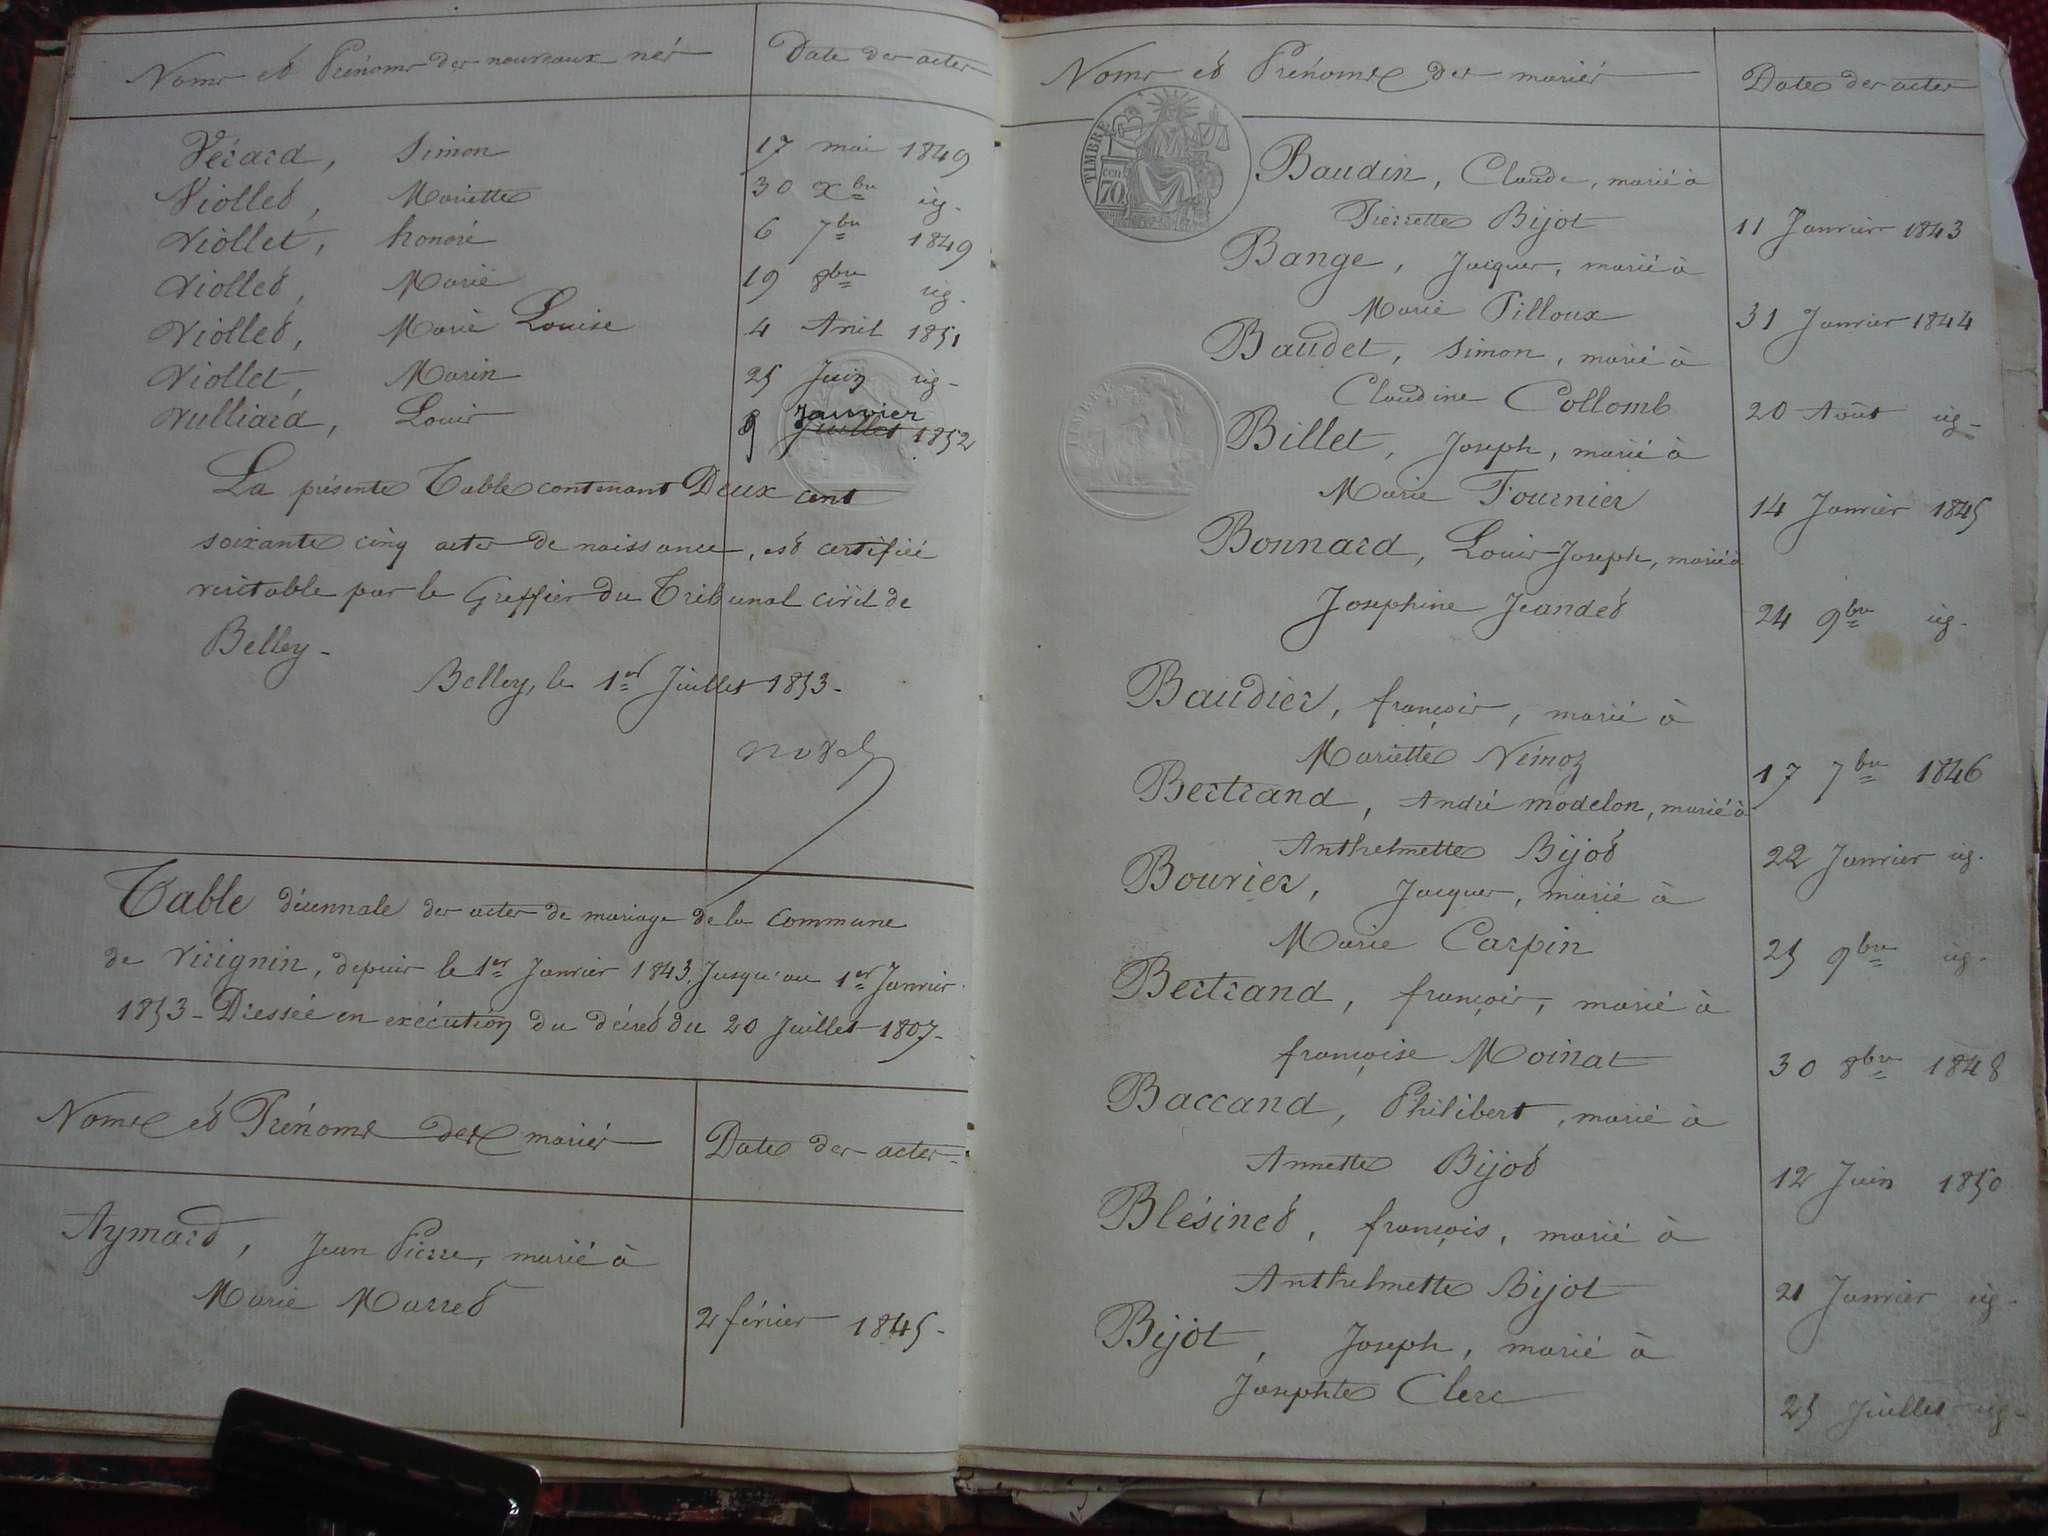 Noms et Prénoms des nouveaux nés
Date des actes
Vérard, Simon 17 mai 1849
Viollet, Mariette 30 xbre id.
Viollet, honoré 6 7bre 1849
Viollet, Marie 19 8bre id.
Viollet, Marie Louise 4 Avril 1851
Viollet, Marin 25 Juin id.
Vulliard, Louis 9 Juillet Janvier 1852
La présente Table contenant Deux cent
soixante cinq actes de naissance, est certifiée
véritable par le Greffier du Tribunal civil de
Belley.
Belley, le 1er Juillet 1853.
Table décennale des actes de mariage de la commune
de Virignin, depuis le 1er Janvier 1843 Jusqu'au 1er Janvier
1853 - Dressée en exécution du décret du 20 Juillet 1807.
Noms et Prénoms des mariés
Date des actes
Aymard, Jean Pierre, marié à
Marie Marret 2 février 1845.
Noms et Prénoms des mariés
Dates des actes
TIMBRE
70
Baudin, Claude, marié à
Pierrette Bijot 11 Janvier 1843
Bange, Jacques, marié à
Marie Pilloux 31 Janvier 1844
Baudet, Simon, marié à
Claudine Collomb 20 Août id.
Billet, Joseph, marié à
Marie Fournier 14 Janvier 1845
Bonnard, Louis Joseph, marié à
Josephine Jeandet 24 9bre id.
Baudier, françois, marié à
Mariette Némoz 17 7bre 1846
Bertrand, André modelon, marié à
Anthelmette Bijot 22 Janvier id.
Bouvier, Jacques, marié à
Marie Carpin 25 9bre id.
Bertrand, françois, marié à
françoise Moirat 30 8bre 1848
Baccand, Philibert, marié à
Annette Bijot 12 Juin 1850
Blésinet, françois, marié à
Anthelmette Bijot 21 Janvier id.
Bijot, Joseph, marié à
Josephte Clerc 25 Juillet id.